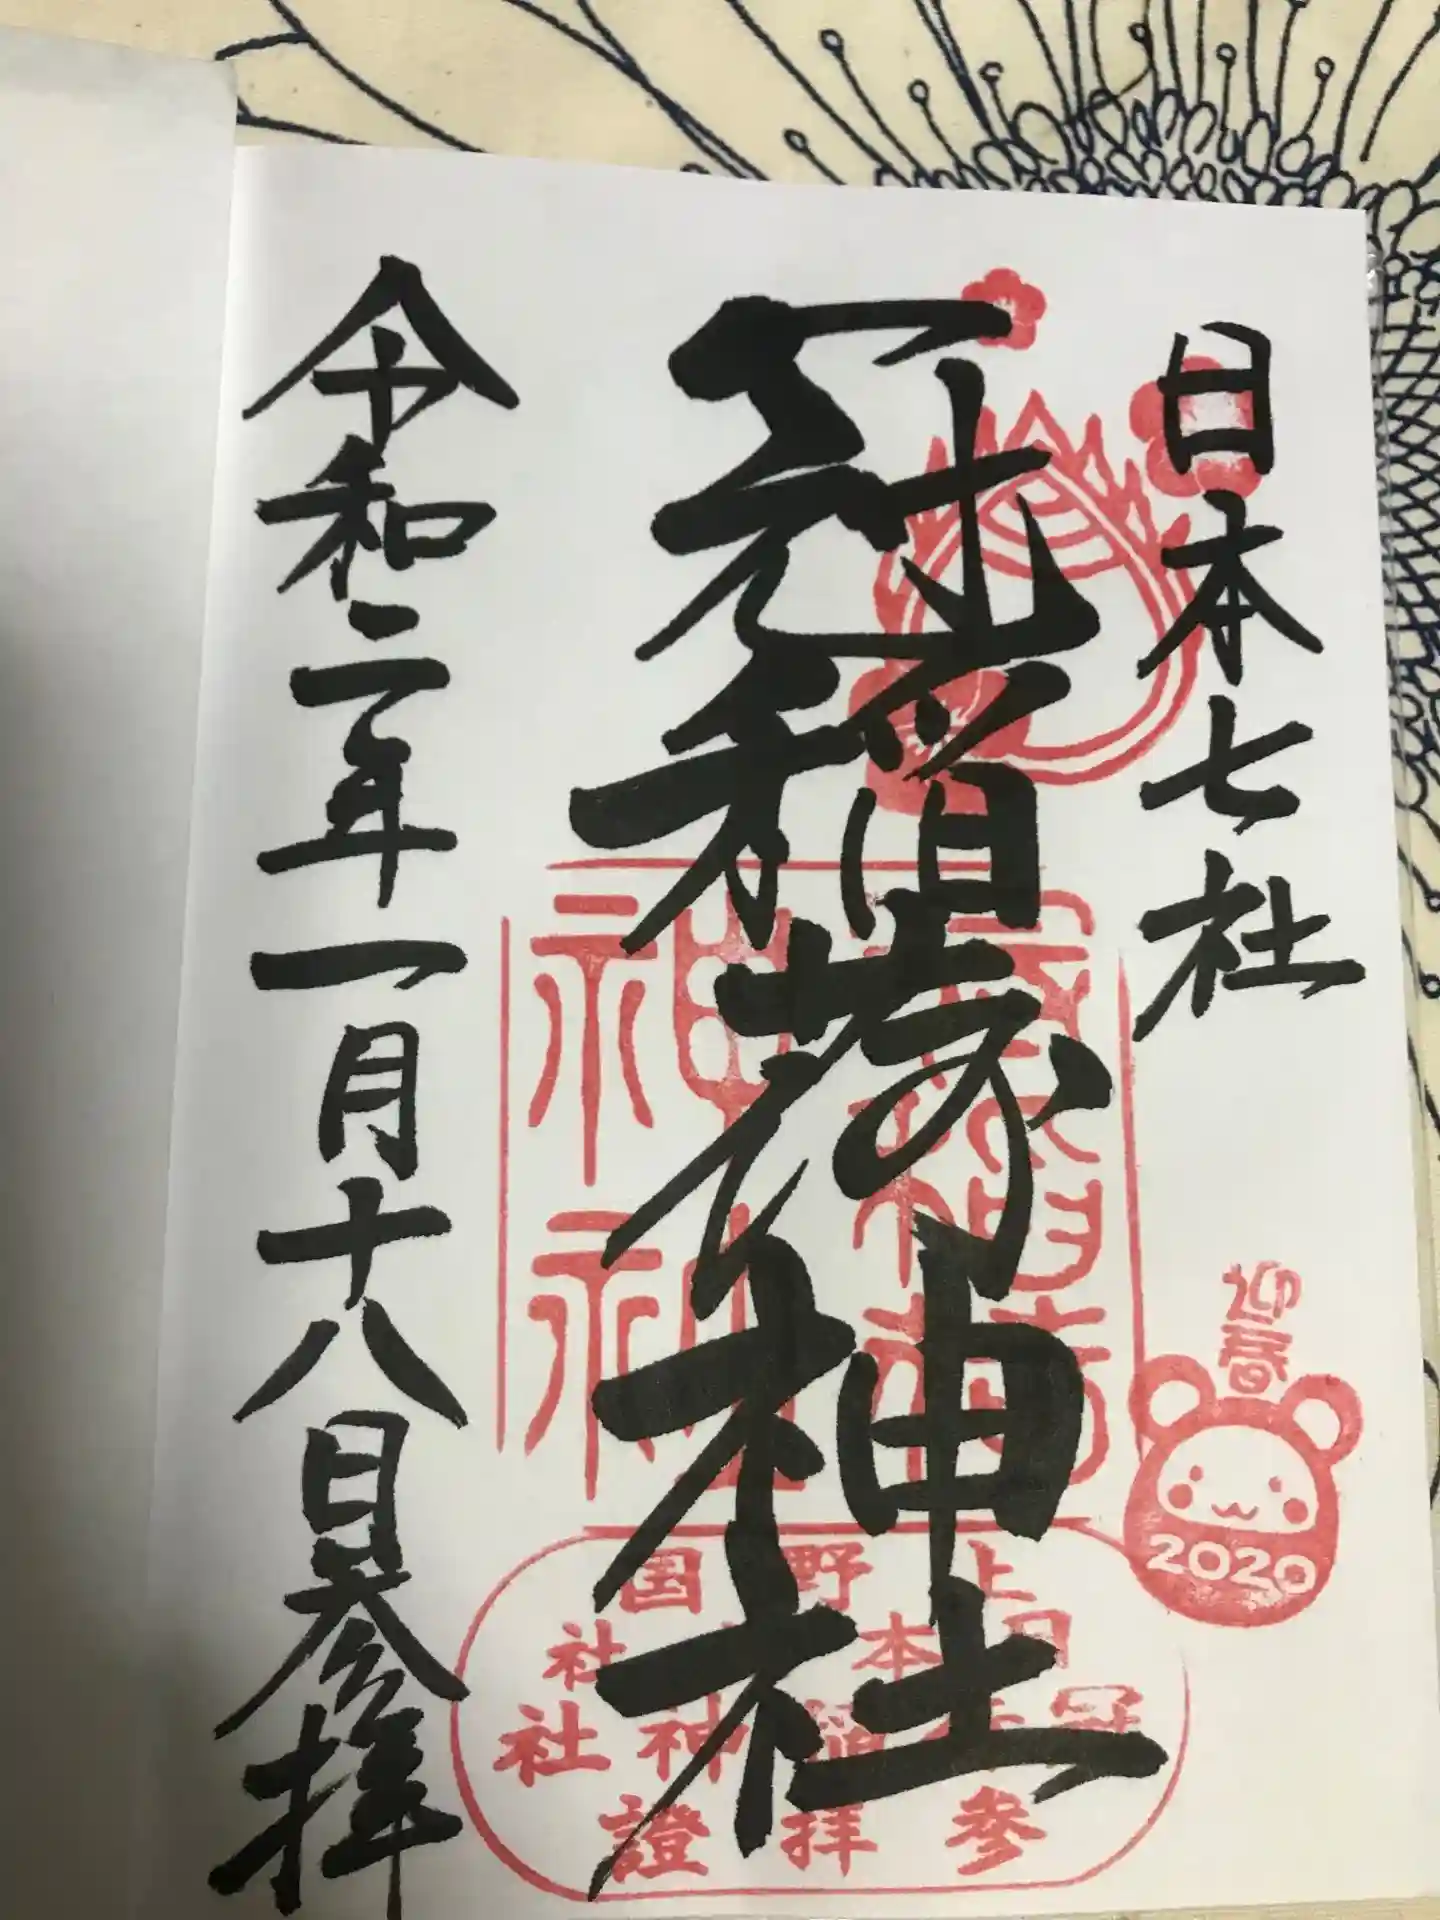 日本七社
冠稲荷神社
令和二年一月十八日参拝
迎春
2020
冠稲荷神社
上野国
日本七社
冠稲荷神社
参拝證